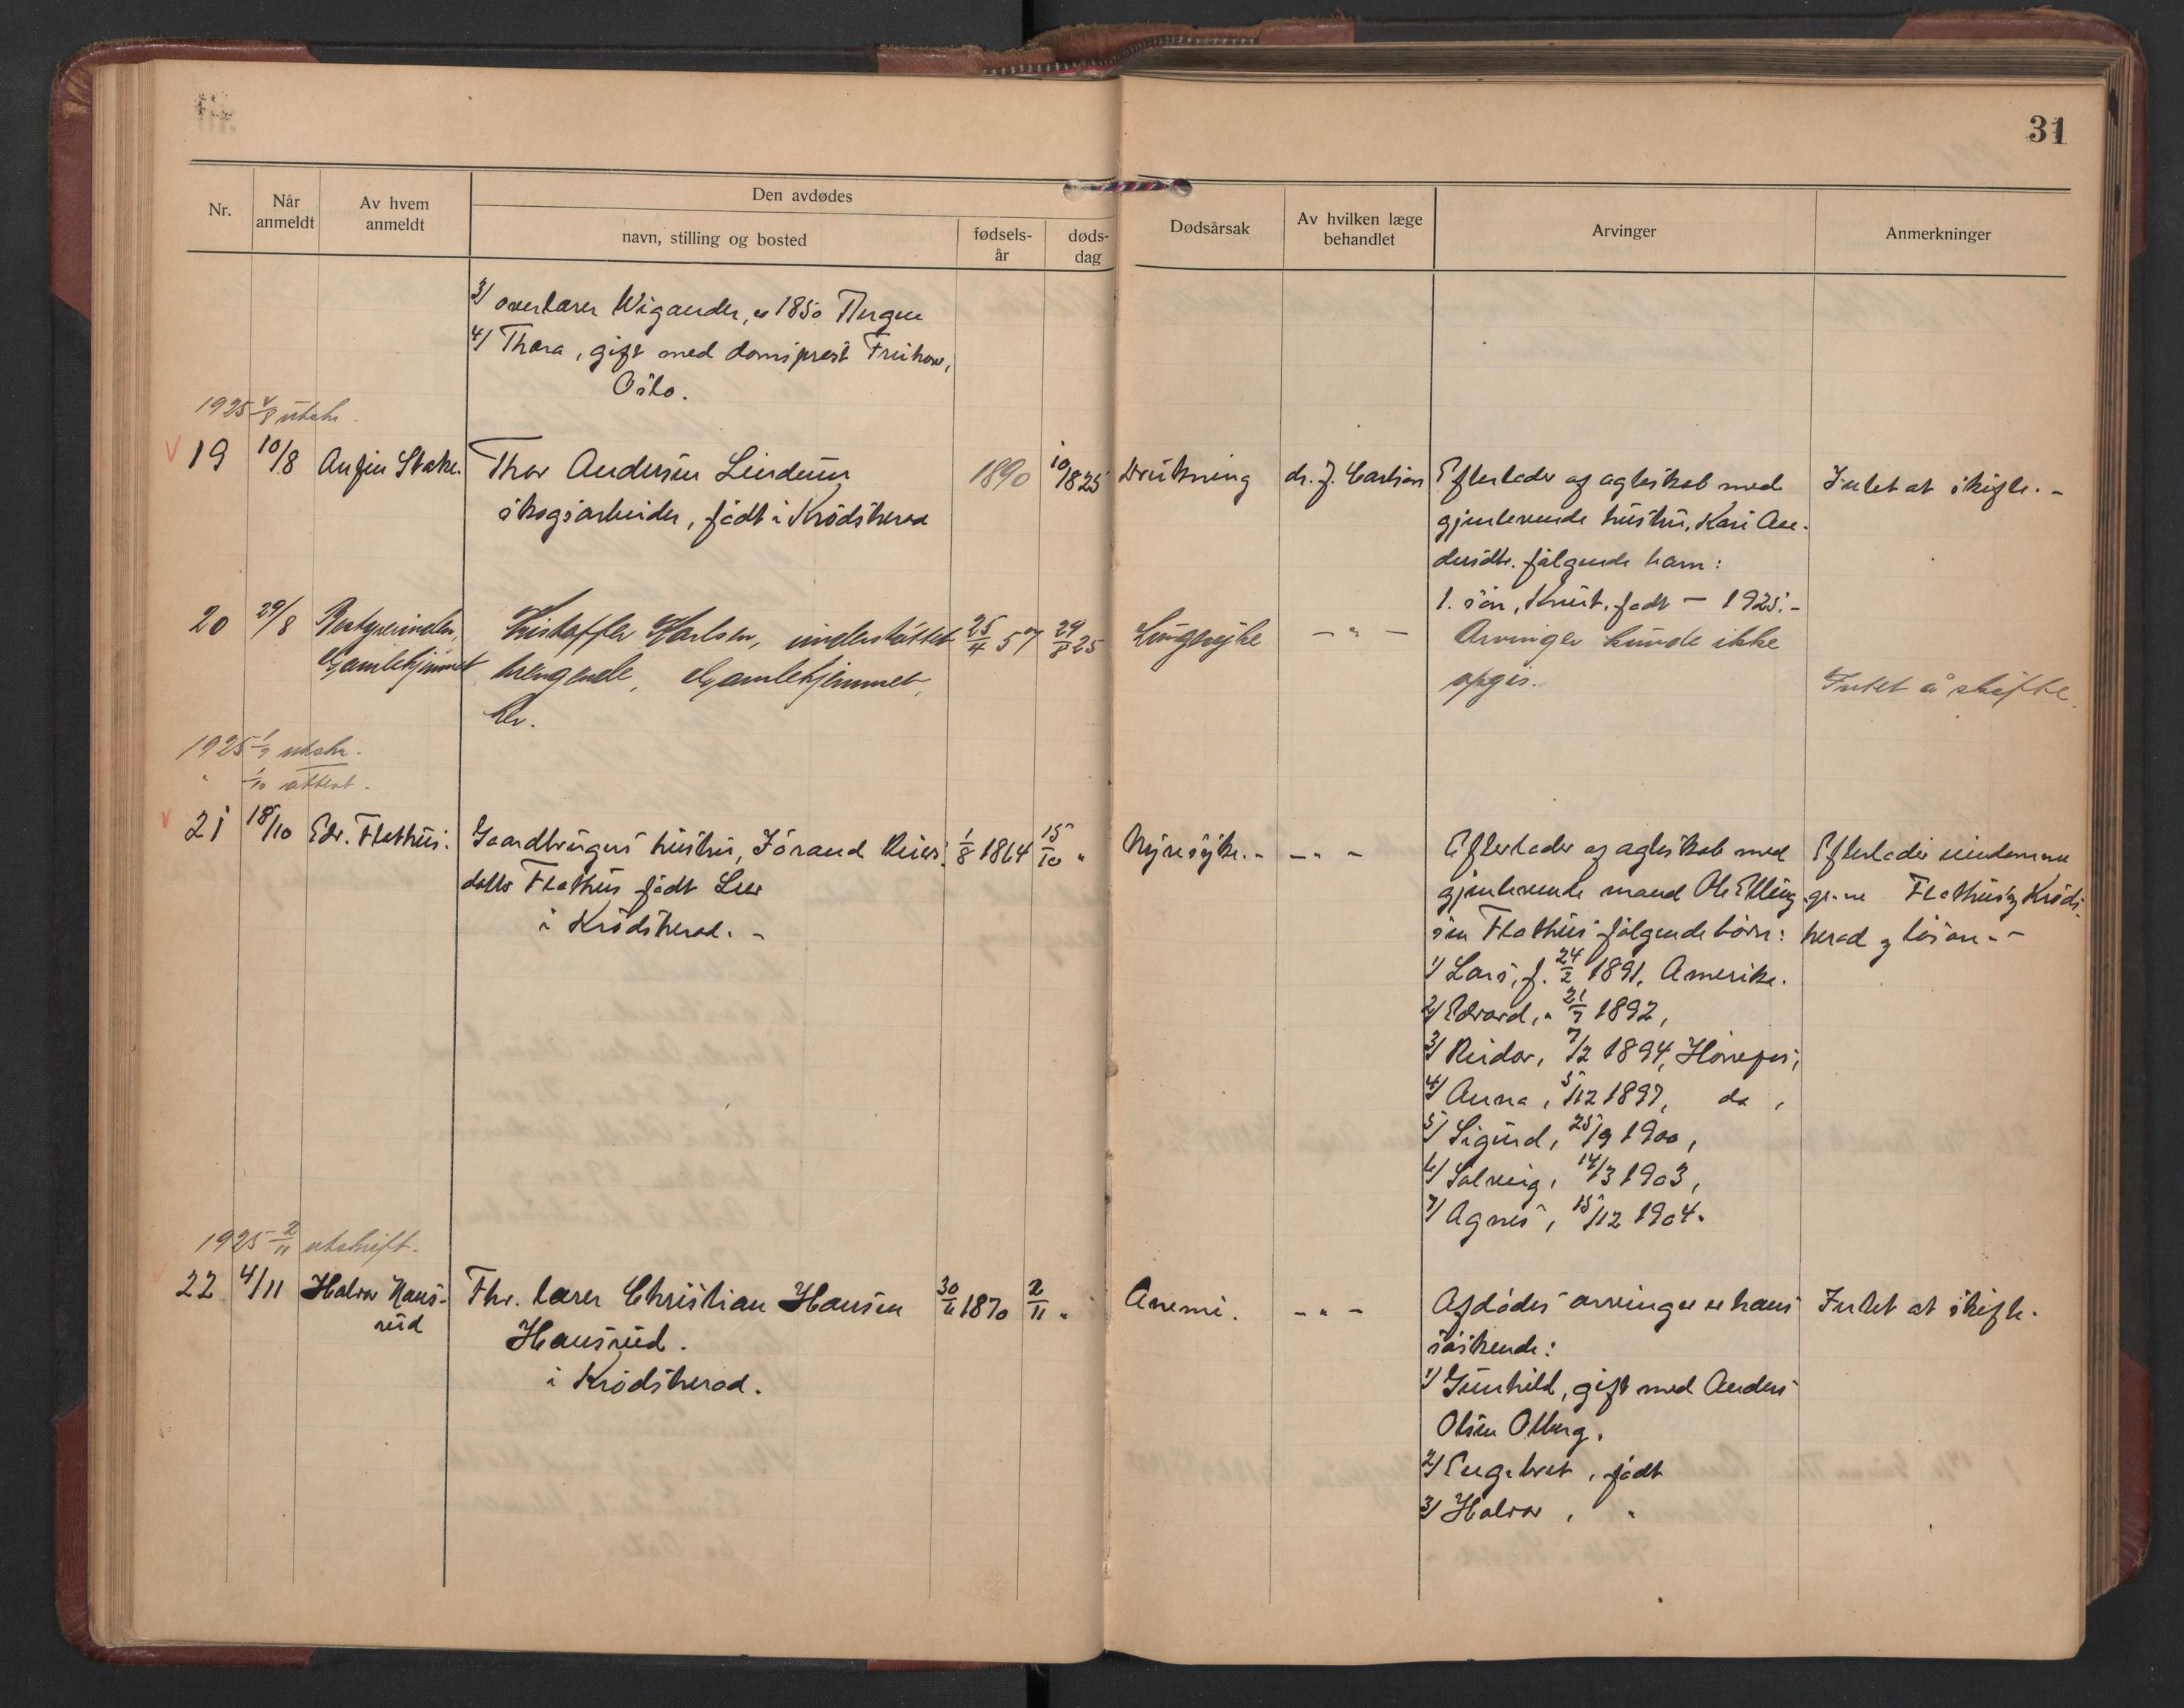 31
Nr.
Når anmeldt
Av hvem anmeldt
Den avdødes
navn, stilling og bosted
fødsels-år
døds-dag
Dødsårsak
Av hvilken læge behandlet
Arvinger
Anmerkninger
3/ overlærer Wigander, " 1850
4/ Thora, gift med domsprest
Oslo.
1925 1/8 utskr.
19 10/8 Anfin Stake. Thor Andersen Lindum 1890 10/8 25 Drukning dr. J. Carlson Efterlader af ægteskab med Intet at skifte. -
skogsarbeider, født i Krødsherad gjenlevende hustru, Kari An-
dersdtr. følgende barn:
1. søn, Knut, født - 1925. -
20 29/8 Bestyrerinden, Kristoffer Karlsen, understøttet 25/4 57 29/8 25 Lungesyke - " - Arvinger kunde ikke
Gamlehjemmet trengende, Gamlehjemmet, opgis. Intet å skifte.
her.
1925 1/9 utskr.
" 1/10 attest.
21 18/10 Edv. Flathus. Gaardbrugers hustru, Jørand Reiers- 1/8 1864 15/10 " Nyresyke. - - " - Efterlader af ægteskab med Efterlader eiendomme
datter Flathus født Leer gjenlevende mand Ole Elling- Flathus Krøds-
i Krødsherad. - sen Flathus følgende børn: herad og løsøre. -
1/ Lars, f. 24/2 1891, Amerika.
2/ Edvard, " 21/7 1892,
3/ Reidar, 7/2 1894, Hønefos,
4/ Anna, 5/12 1897, do,
5/ Sigurd, 25/9 1900,
6/ Solveig, 14/3 1903,
7/ Agnes, 15/12 1904.
1925 2/11 utskrift.
22 4/11 Halvor Hans- Fhv. lærer Christian Hansen 30/6 1870 2/11 " Anemi. - " - Afdødes arvinger er hans Intet at skifte.
rud Hansrud. søskende:
i Krødsherad. 1/ Gunhild, gift med Anders
Olsen Olberg.
2/ Engebret, født
3/ Halvor, "